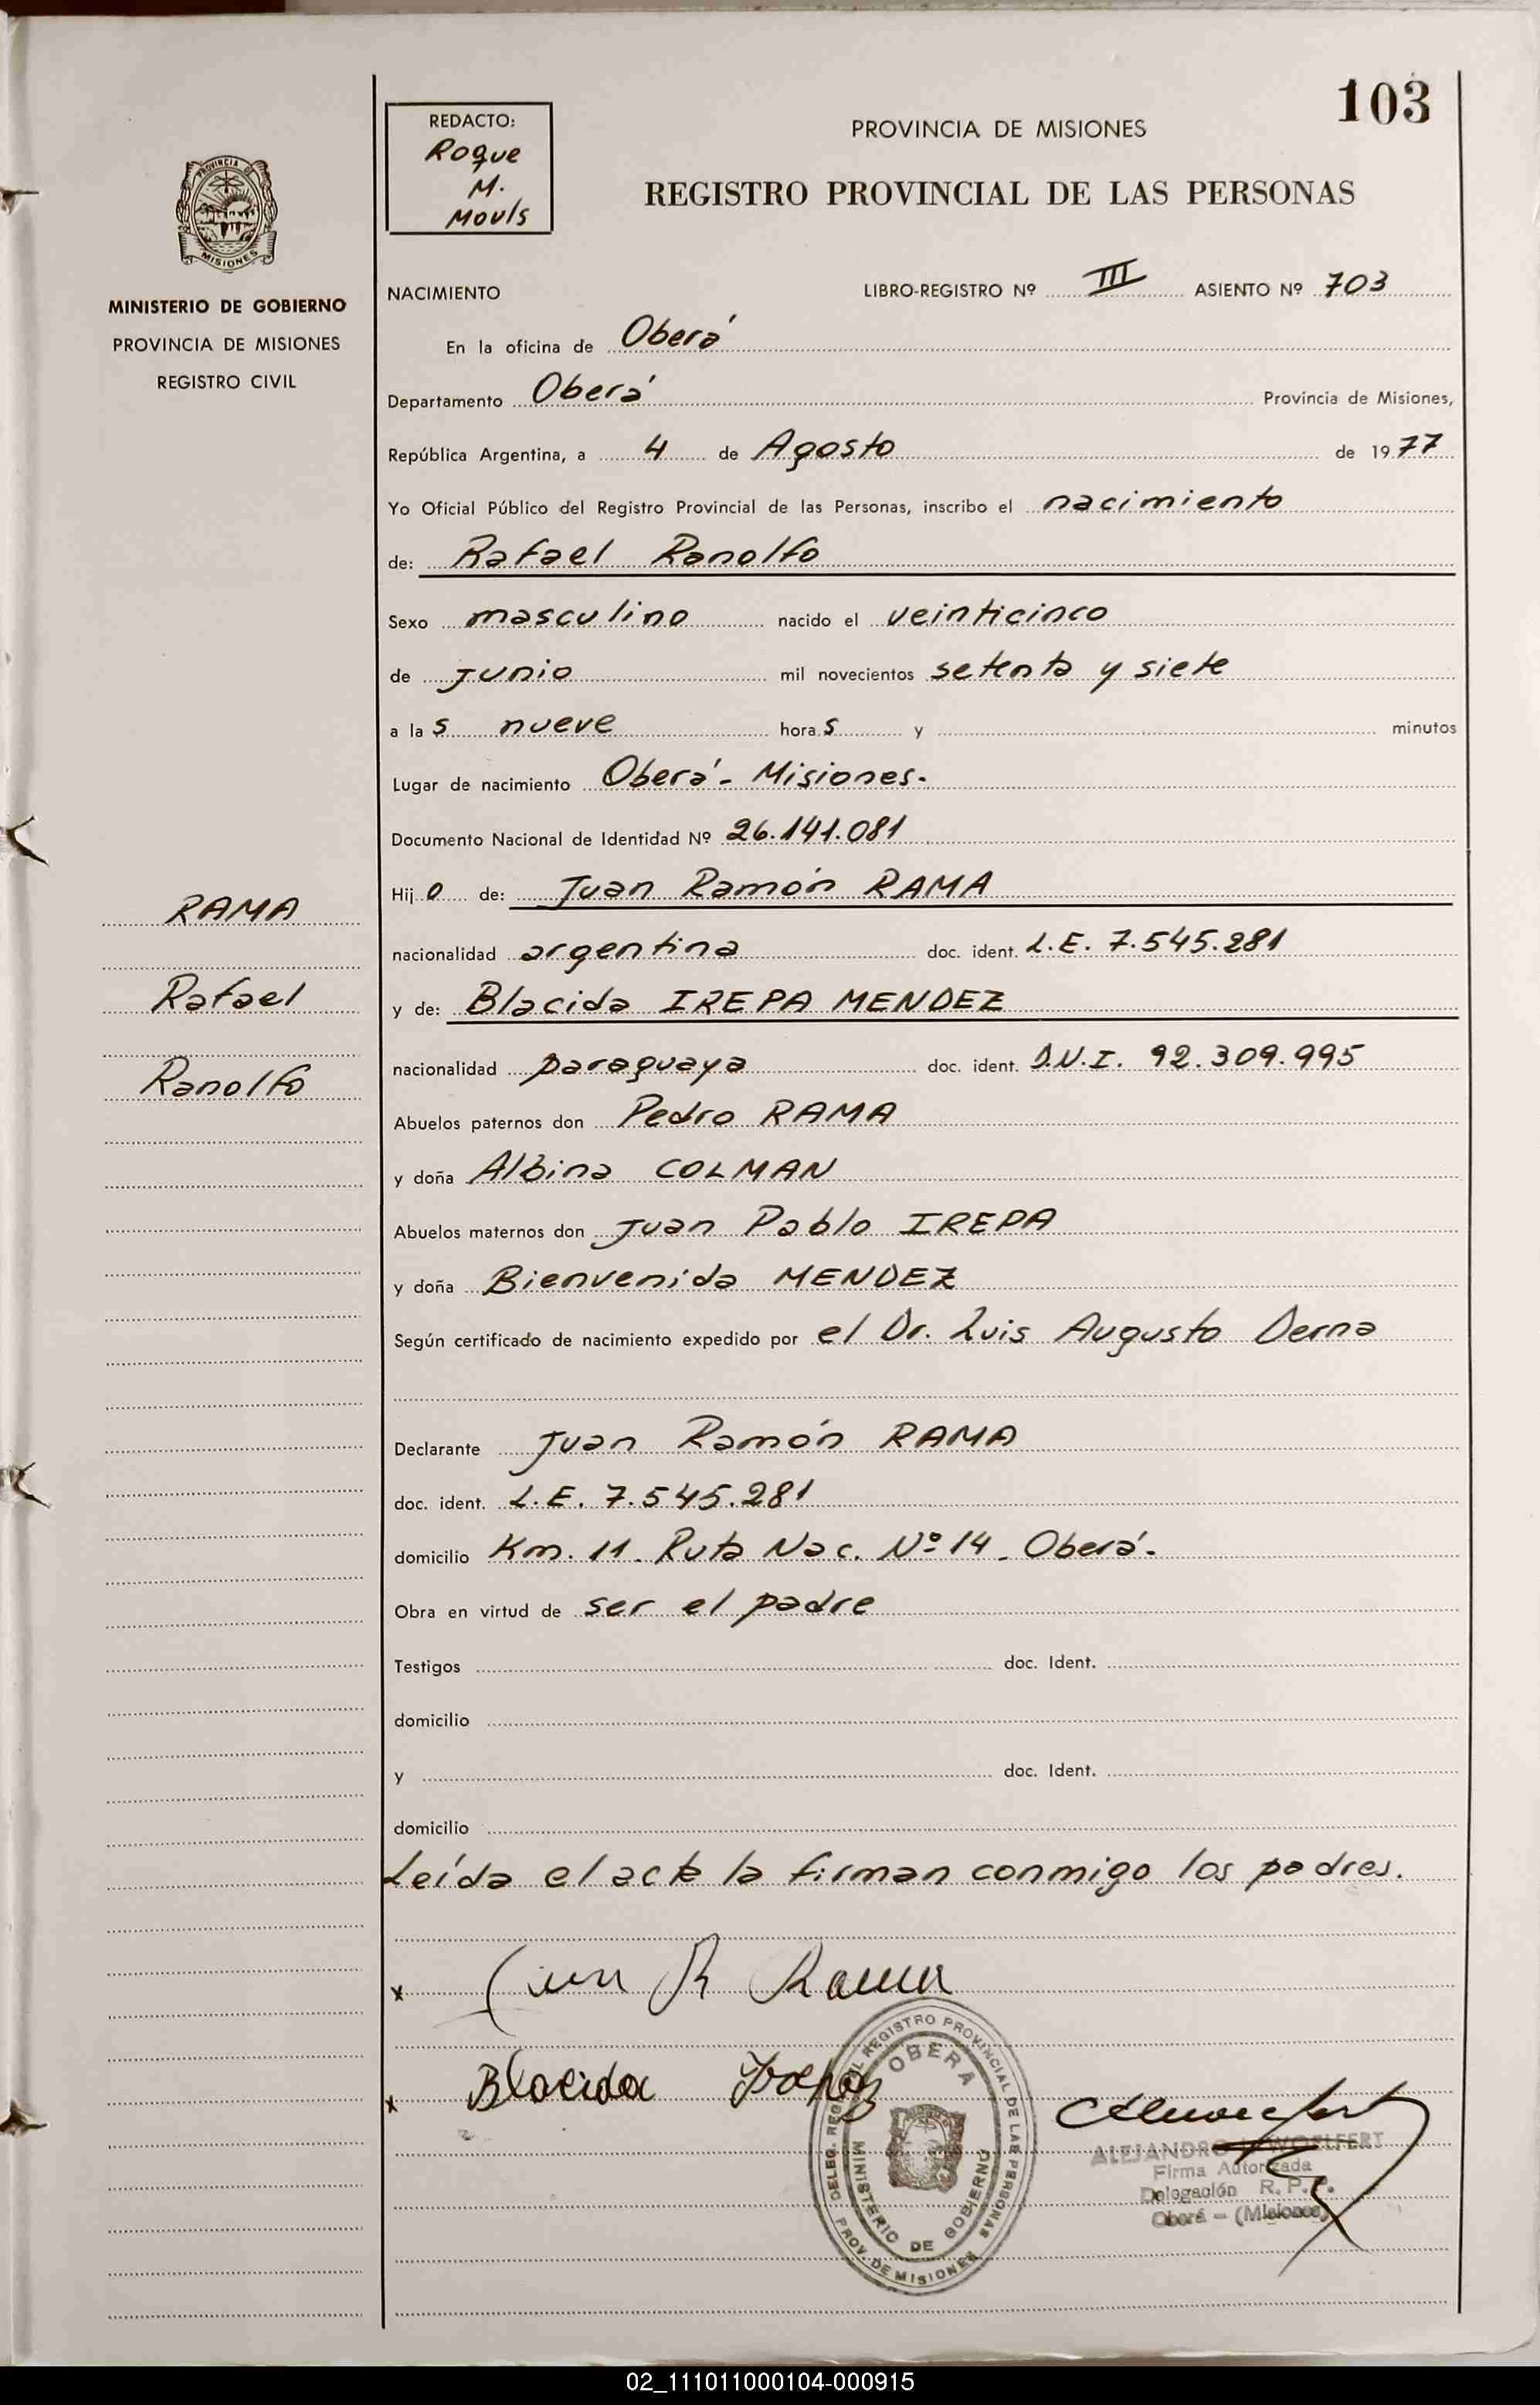 103
REDACTO:
Roque
M.
Mouls
PROVINCIA DE MISIONES
REGISTRO PROVINCIAL DE LAS PERSONAS
PROVINCIA DE
MISIONES
MINISTERIO DE GOBIERNO
PROVINCIA DE MISIONES
REGISTRO CIVIL
NACIMIENTO LIBRO-REGISTRO Nº III ASIENTO Nº 703
En la oficina de Oberá
Departamento Oberá Provincia de Misiones,
República Argentina, a 4 de Agosto de 1977
Yo Oficial Público del Registro Provincial de las Personas, inscribo el nacimiento
de: Rafael Ranolfo
Sexo masculino nacido el veinticinco
de junio mil novecientos setenta y siete
a las nueve horas y minutos
Lugar de nacimiento Oberá - Misiones.
Documento Nacional de Identidad Nº 26.141.081
Hijo de: Juan Ramón RAMA
RAMA
nacionalidad argentina doc. ident. L.E. 7.545.281
Rafael
y de: Blacida IREPA MENDEZ
Ranolfo
nacionalidad paraguaya doc. ident. D.N.I. 92.309.995
Abuelos paternos don Pedro RAMA
y doña Albina COLMAN
Abuelos maternos don Juan Pablo IREPA
y doña Bienvenida MENDEZ
Según certificado de nacimiento expedido por el Dr. Luis Augusto Derna
Declarante Juan Ramón RAMA
doc. ident. L.E. 7.545.281
domicilio Km. 11. Ruta Nac. Nº 14. Oberá.
Obra en virtud de ser el padre
Testigos doc. Ident.
domicilio
y doc. Ident.
domicilio
Leída el acta la firman conmigo los padres.
x Juan R Rama
x Blacida
DELEG. REG REGISTRO PROVINCIAL DE LAS PERSONAS
PROV. DE MISIONES
OBERA
MINISTERIO DE GOBIERNO
ALEJANDRO WOELFERT
Firma Autorizada
Delegación R. P. P.
Oberá - (Misiones)
02_111011000104-000915